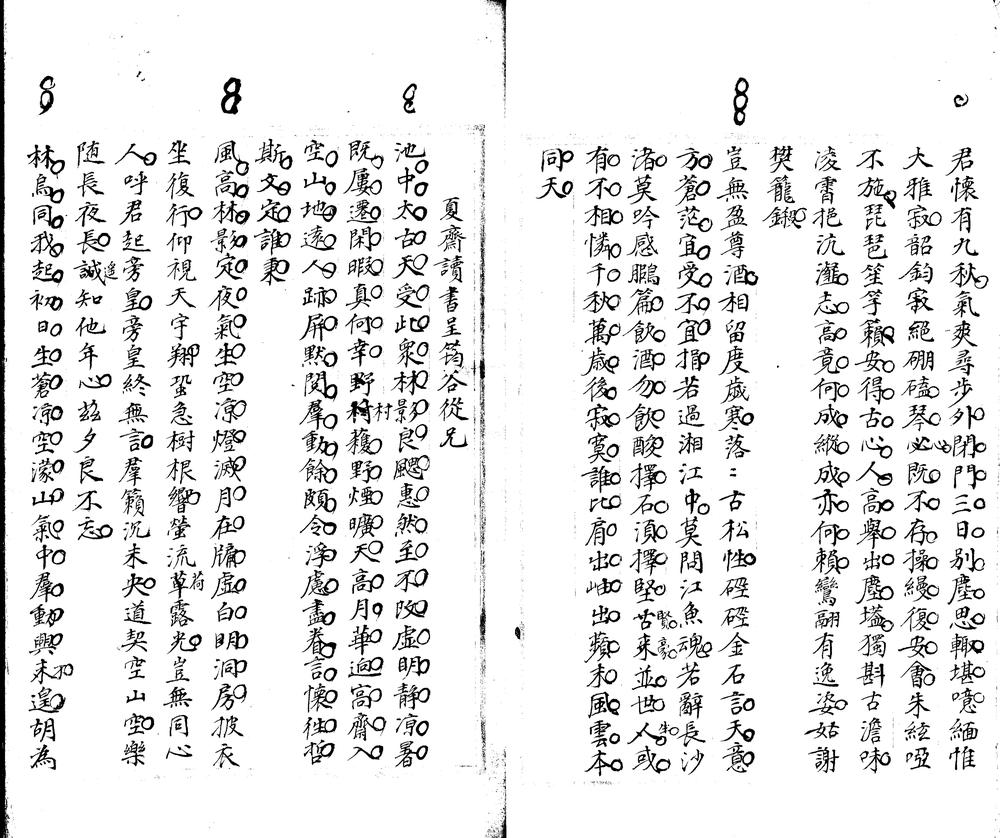 君懷有九秋氣爽尋步外閉門三日別塵思輙堪噫緬惟
大雅寂韶鈞寂絕硼磕琴必既不存操縵復安會朱絃啞
不施琵琶笙竽籟安得古心人高舉出塵壒獨斟古澹味
凌霄挹沆瀣志高竟何成縱成亦何賴鸞翮有逸姿姑謝
樊籠鎩
豈無盈尊酒相留度歲寒落〻古松性硜硜金石言天意
方蒼茫宜受不宜捐若過湘江中莫問江魚魂若辭長沙
渚莫吟感鵩篇飲酒勿飲酸擇石須擇堅古來並世人或
賢豪
有不相憐千秋萬歲後寂寞誰比肩出岫出蘋末風雲本
同天
夏齋讀書呈筠谷從兄
池中太古天受此衆林影良颸惠然至不隔虛明靜涼暑
既屢遷閑暇真何幸野村穫野煙曠天高月華迥高齋入
空山地遠人跡屏默閱羣動餘頗令淨慮盡眷言懷往哲
斯文定誰秉
風高林影定夜氣生空凉燈滅月在牖虛白明洞房披衣
坐復行仰視天宇翔蛩急樹根響螢流草露光豈無同心
荷
人呼君起旁皇旁皇終無言羣籟沉未央道契空山空樂
随長夜長誠知他年心茲夕良不忘
林烏同我起初日生蒼凉空濛山氣中羣動興未遑胡為